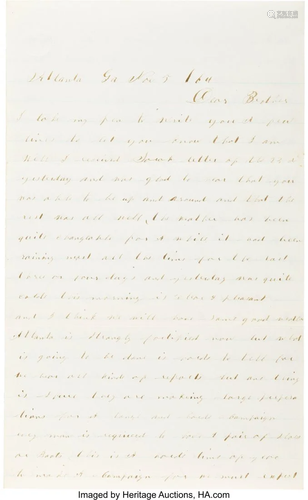 Atlanta Ga Nov 5 /64
Dear Brother
I take my pen to write you a few
lines to let you know that I am
well I received letter of the
yesterday and was glad to hear that you
was able to be up and around and that the
rest was all well the weather has been
quite changeable for a while it has been
raining most all the time for the last
three or four days and yesterday was quite
this morning is clear & pleasant
and I think we will have some good weather
Atlanta is strongly fortified now but what
is going to be done is hard to tell for
we have all kind of reports but one thing
is sure they are making large prepara
tions for a long and campaign
every man is required to have 1 pair of shoes
or boots this is a time of year
to a campaign for we must expect
Imaged by Heritage Auctions, HA.com